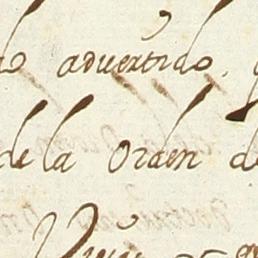 do advertido.
de la Orden de